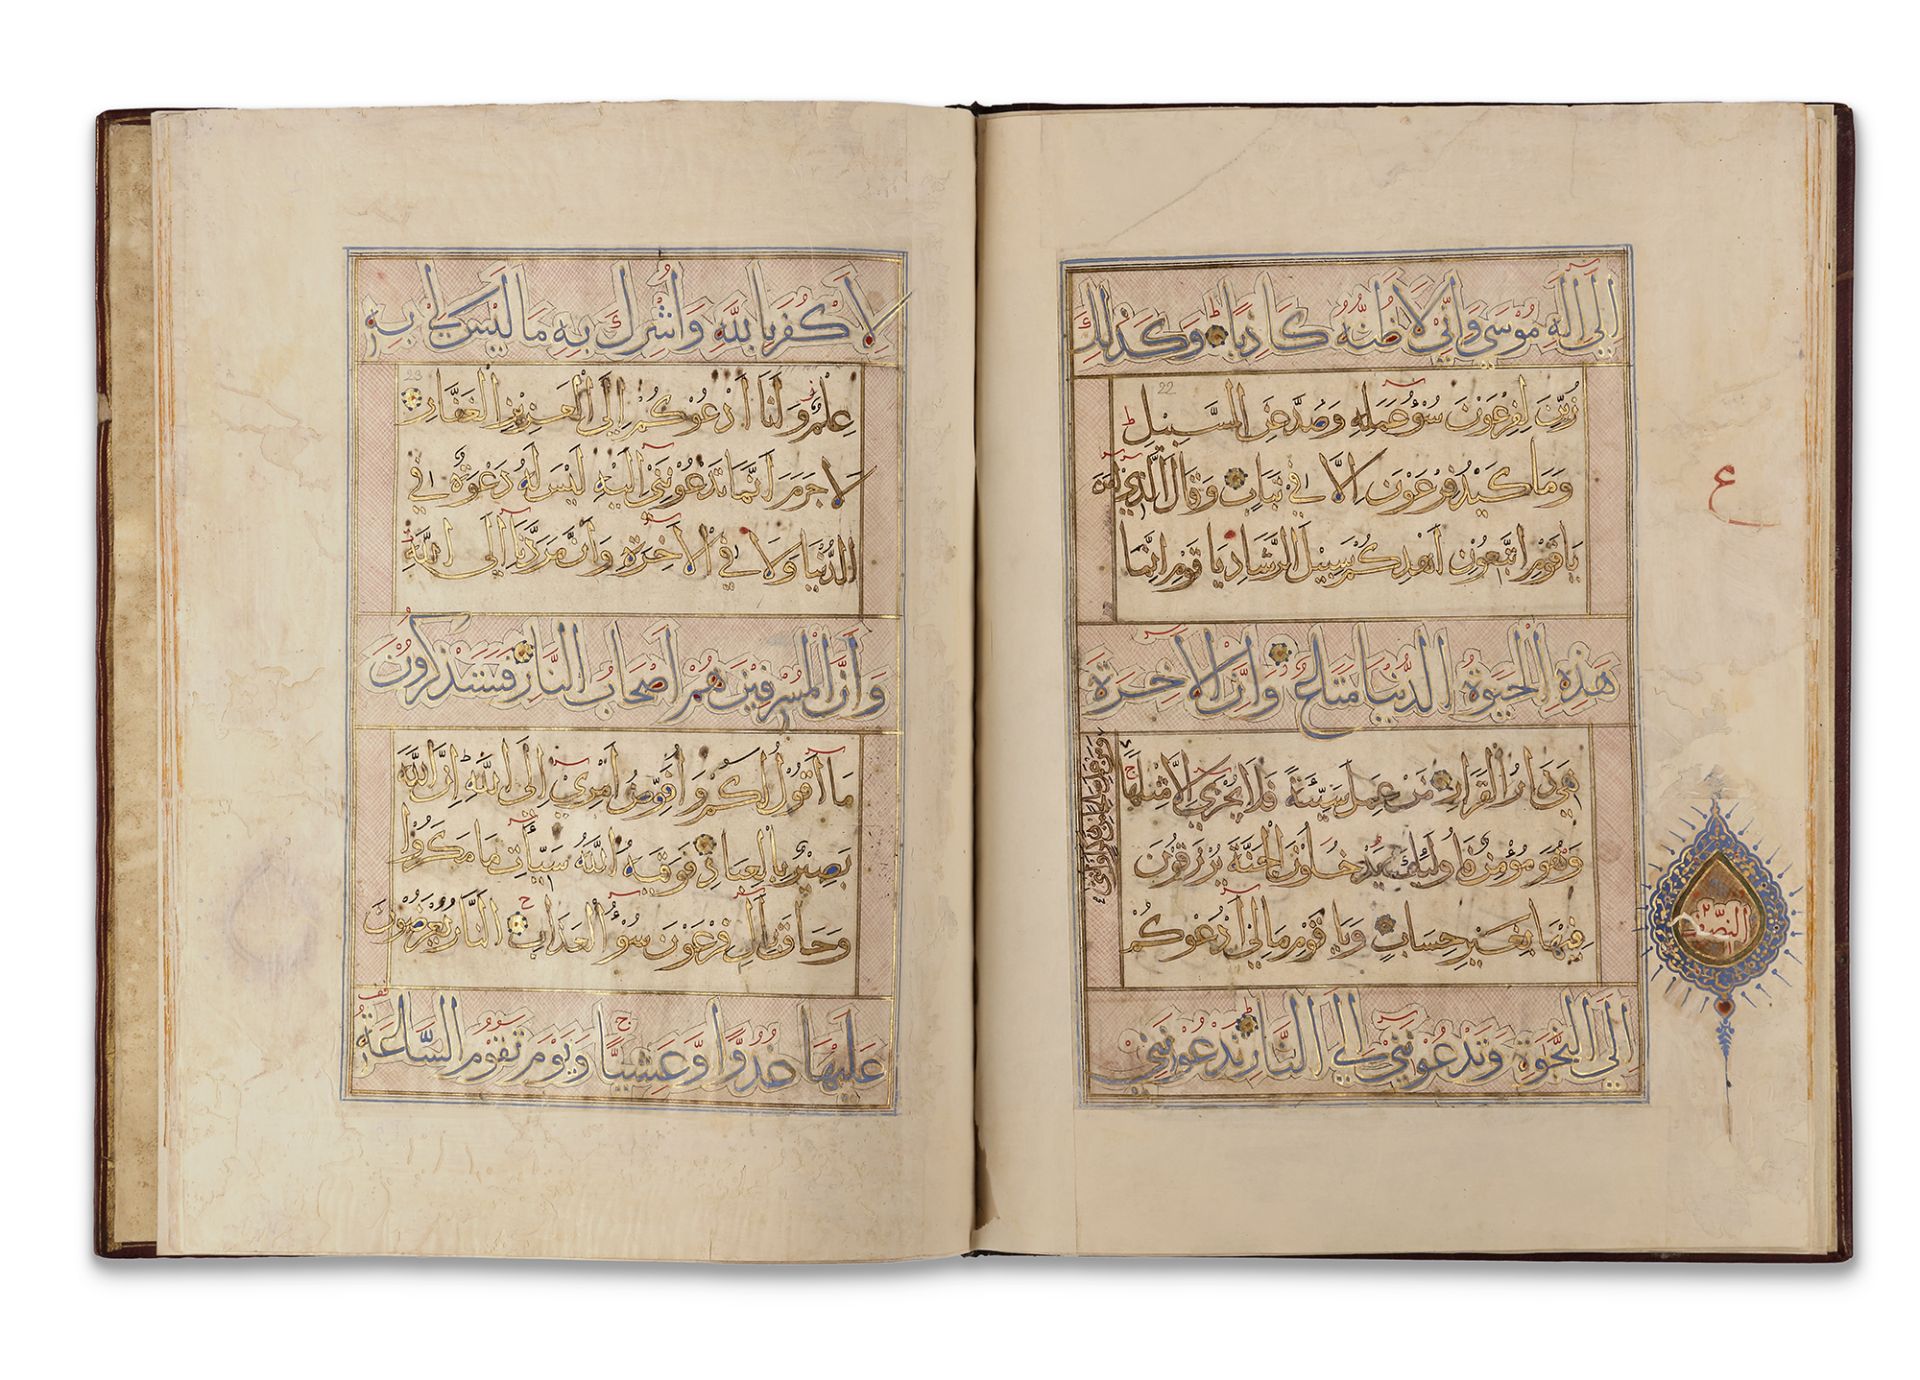 اِلَى اِلَهِ مُوْسَى وَاِنِّيْ لَاَظُنُّهُ كَاذِبًا وَكَذَلِكَ
22
زُيِّنَ لِفِرْعَوْنَ سُوْءُ عَمَلِهِ وَصُدَّ عَنِ السَّبِيْلِ
وَمَا كَيْدُ فِرْعَوْنَ اِلَّا فِي تَبَابٍ وَقَالَ الَّذِيْ اٰمَنَ
ع
يَا قَوْمِ اتَّبِعُوْنِ اَهْدِكُمْ سَبِيْلَ الرَّشَادِ يَا قَوْمِ اِنَّمَا
هَذِهِ الْحَيٰوةُ الدُّنْيَا مَتَاعٌ وَاِنَّ الْاَخِرَةَ
هِيَ دَارُ الْقَرَارِ مَنْ عَمِلَ سَيِّئَةً فَلَا يُجْزَى اِلَّا مِثْلَهَا
وَمَنْ عَمِلَ صَالِحًا مِنْ ذَكَرٍ اَوْ اُنْثَى
وَهُوَ مُؤْمِنٌ فَاُولَئِكَ يَدْخُلُوْنَ الْجَنَّةَ يُرْزَقُوْنَ
فِيْهَا بِغَيْرِ حِسَابٍ وَيَا قَوْمِ مَا لِيْ اَدْعُوْكُمْ
النصف
اِلَى النَّجٰوةِ وَتَدْعُوْنَنِيْ اِلَى النَّارِ تَدْعُوْنَنِيْ
لِاَكْفُرَ بِاللّٰهِ وَاُشْرِكَ بِهِ مَا لَيْسَ لِيْ بِهِ
23
عِلْمٌ وَاَنَا اَدْعُوْكُمْ اِلَى الْعَزِيْزِ الْغَفَّارِ
لَا جَرَمَ اَنَّمَا تَدْعُوْنَنِيْ اِلَيْهِ لَيْسَ لَهُ دَعْوَةٌ فِي
الدُّنْيَا وَلَا فِي الْاَخِرَةِ وَاَنَّ مَرَدَّنَا اِلَى اللّٰهِ
وَاَنَّ الْمُسْرِفِيْنَ هُمْ اَصْحَابُ النَّارِ فَسَتَذْكُرُوْنَ
مَا اَقُوْلُ لَكُمْ وَاُفَوِّضُ اَمْرِيْ اِلَى اللّٰهِ اِنَّ اللّٰهَ
بَصِيْرٌ بِالْعِبَادِ فَوَقٰهُ اللّٰهُ سَيِّاٰتِ مَا مَكَرُوْا
وَحَاقَ بِاٰلِ فِرْعَوْنَ سُوْءُ الْعَذَابِ النَّارُ يُعْرَضُوْنَ
عَلَيْهَا غُدُوًّا وَعَشِيًّا وَيَوْمَ تَقُوْمُ السَّاعَةُ